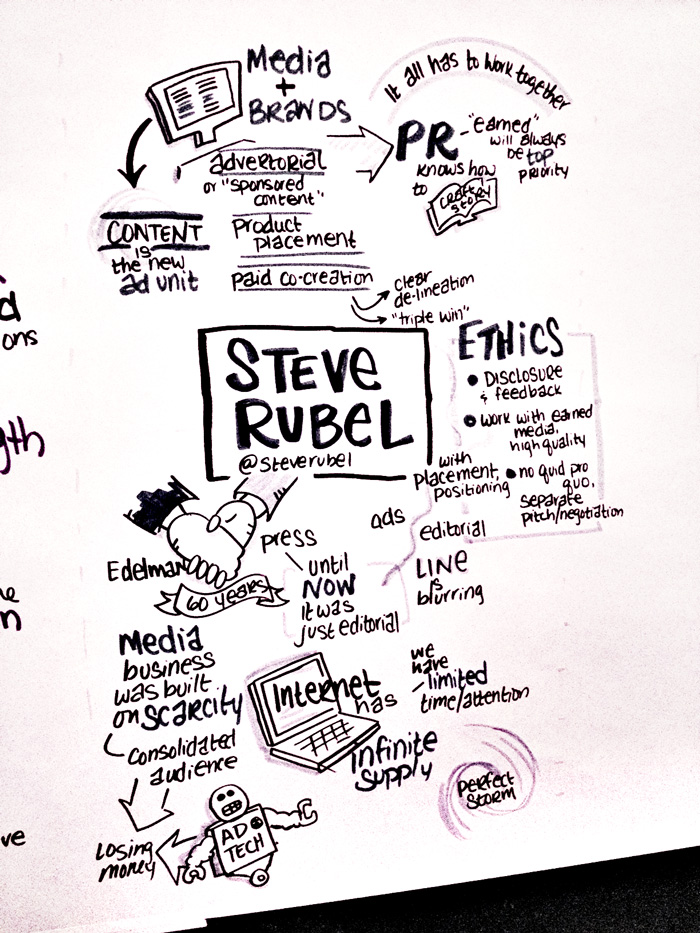 Media
+
BRANDS
It all has to work together
PR
- "earned"
will always
be top
priority
knows how
to
CRAFT
STORY
advertorial
or "sponsored
content"
Product
Placement
Paid co-creation
clear
de-lineation
"triple win"
CONTENT
is
the new
ad unit
STEVE
RUBEL
@steverubel
ETHICS
• DISCLOSURE
& feedback
• work with earned
media.
high quality
• no quid pro
quo.
separate
pitch/negotiation
with
placement,
positioning
ads
editorial
LINE
is
blurring
Edelman
60 years
press
until
NOW
it was
just editorial
Media
business
was built
on SCARCITY
consolidated
audience
losing
money
AD
TECH
Internet
has
infinite
supply
we
have
limited
time/attention
perfect
storm
d
ons
gth
n
ve